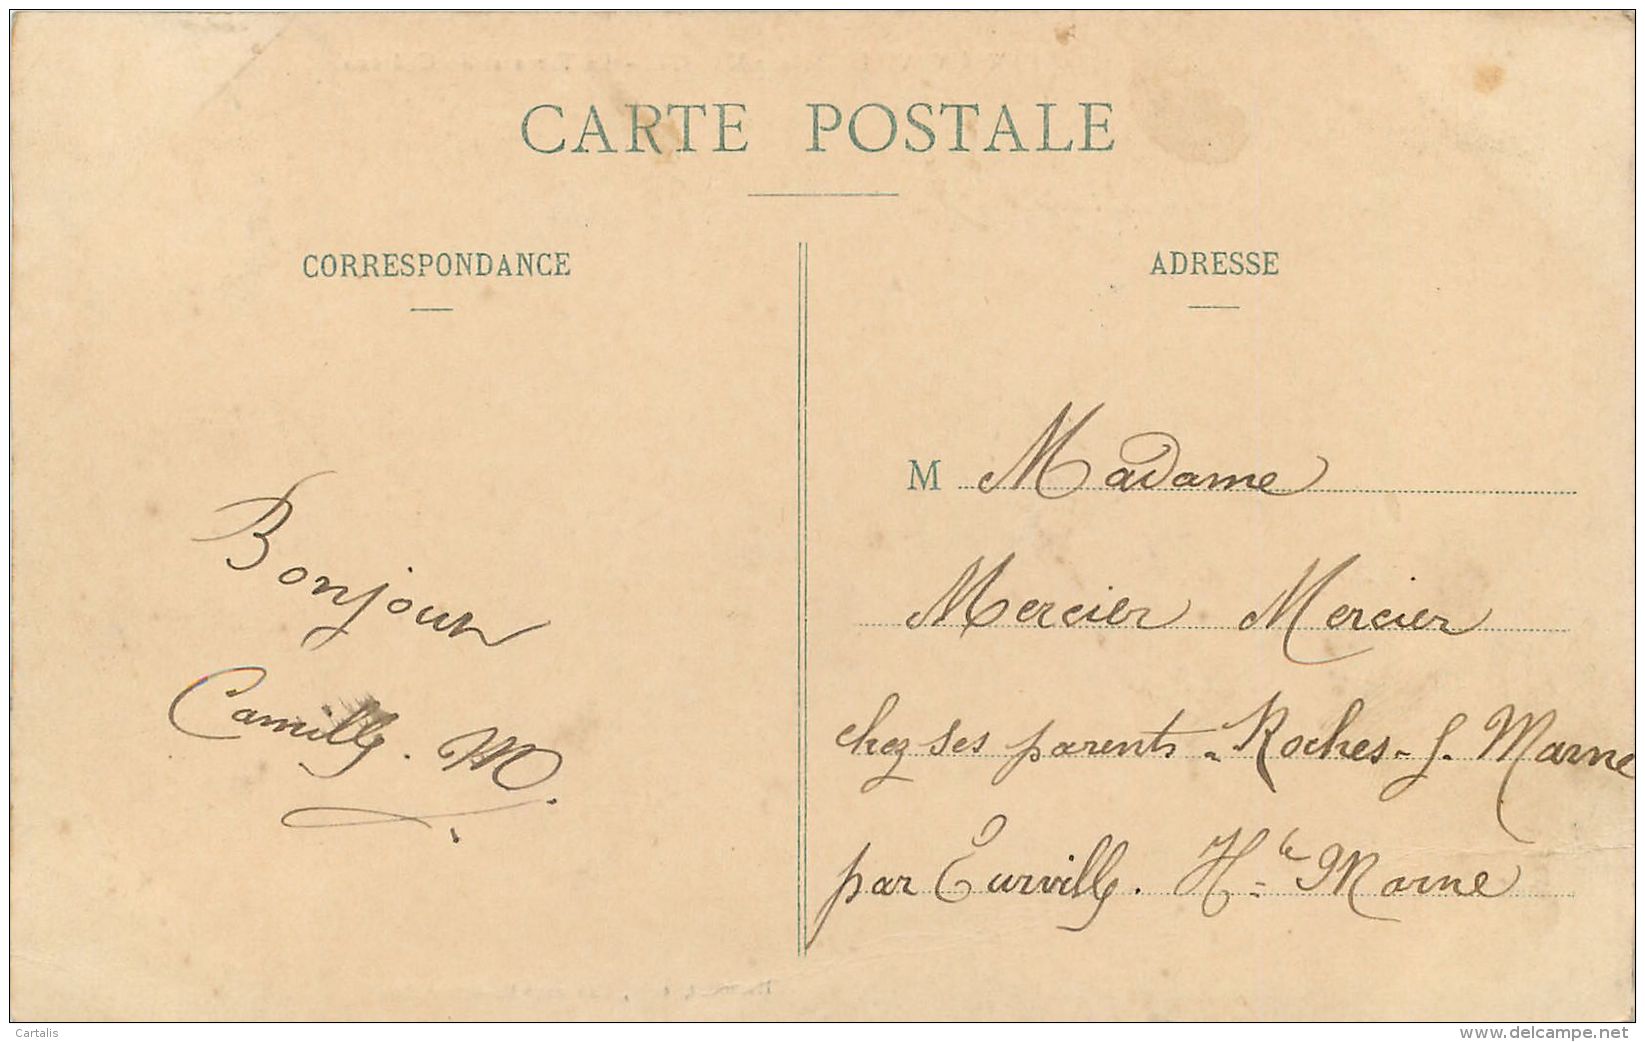 CARTE POSTALE
CORRESPONDANCE
Bonjour
Camille. M.
ADRESSE
M Madame
Mercier Mercier
chez ses parents - Roches - s. Marne
par Eurville. Hte Marne
Cartalis
www.delcampe.net